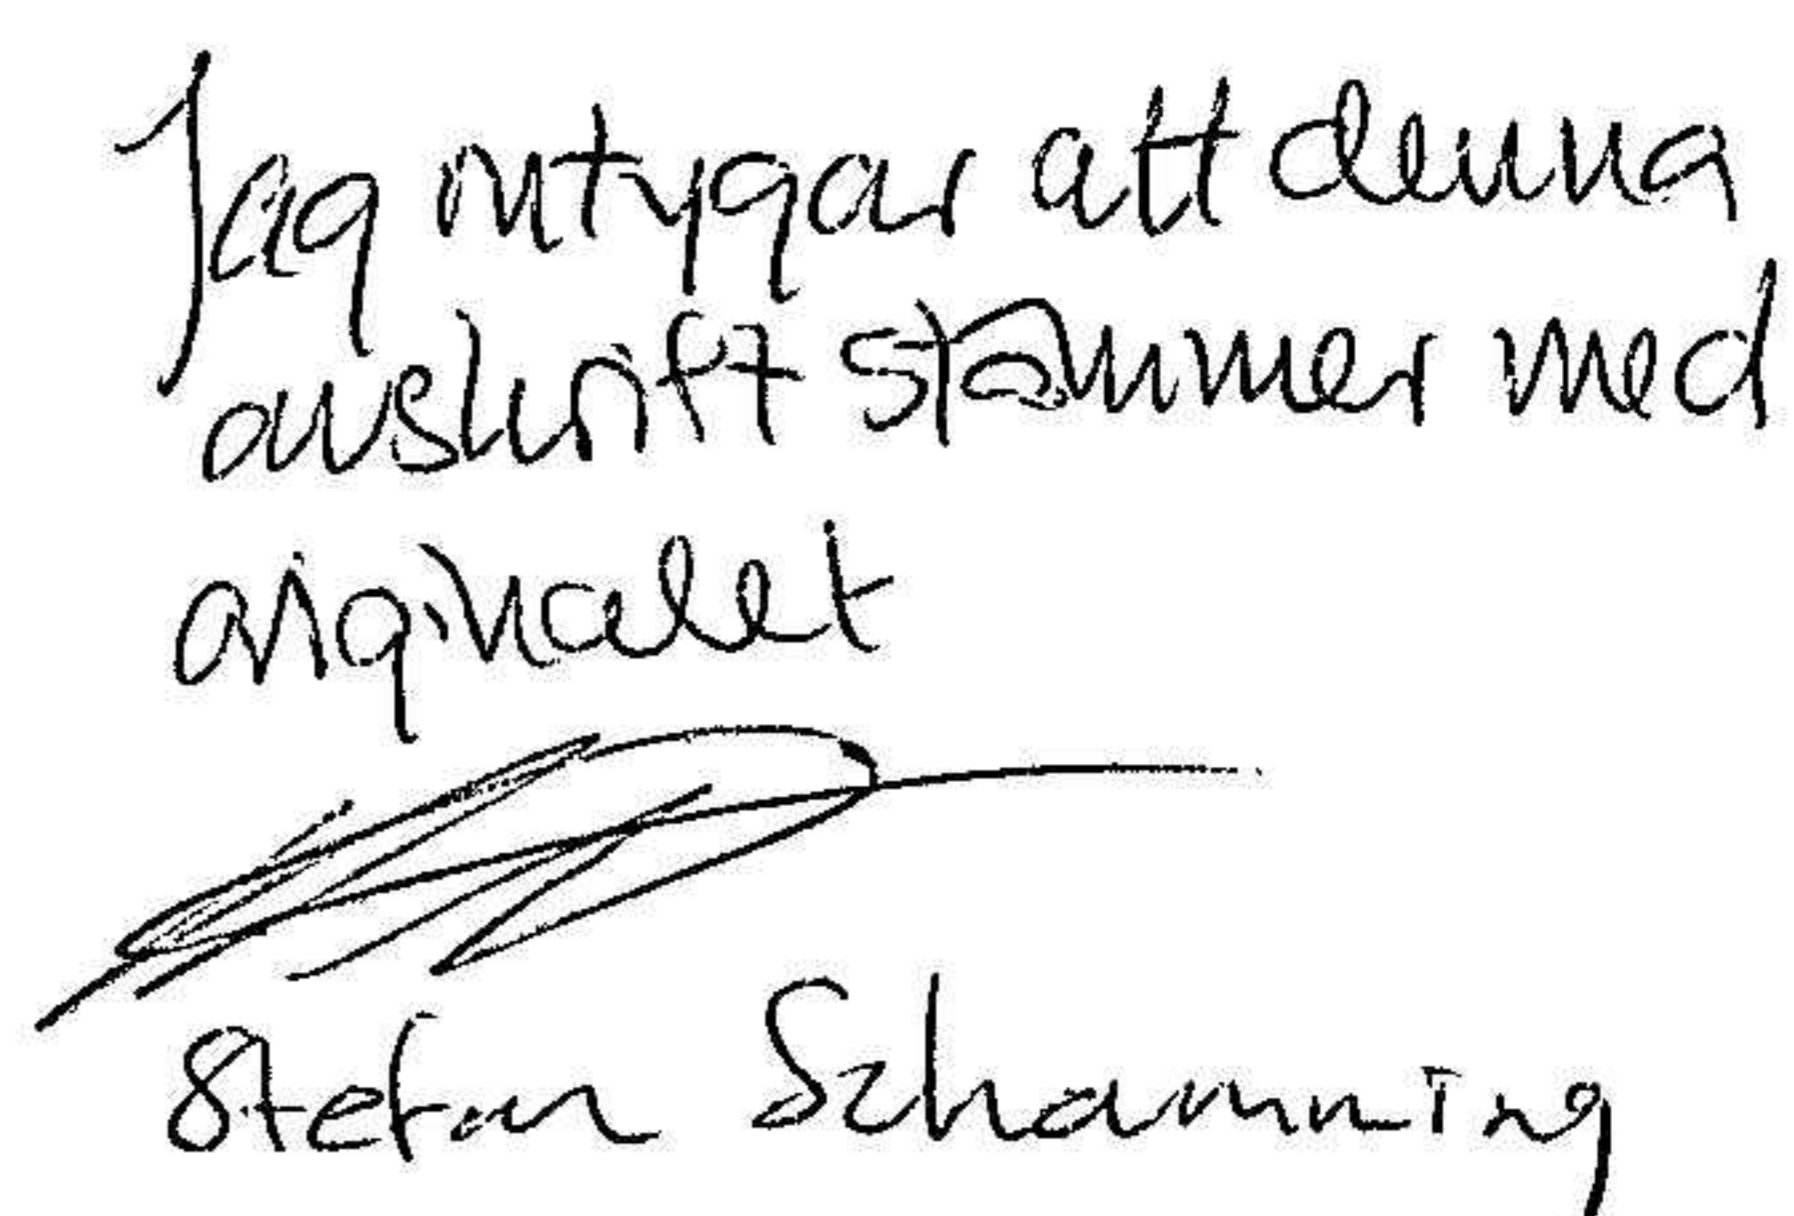 Jag intygar att denna
avskrift stämmer med
originalet
Stefan Schamming